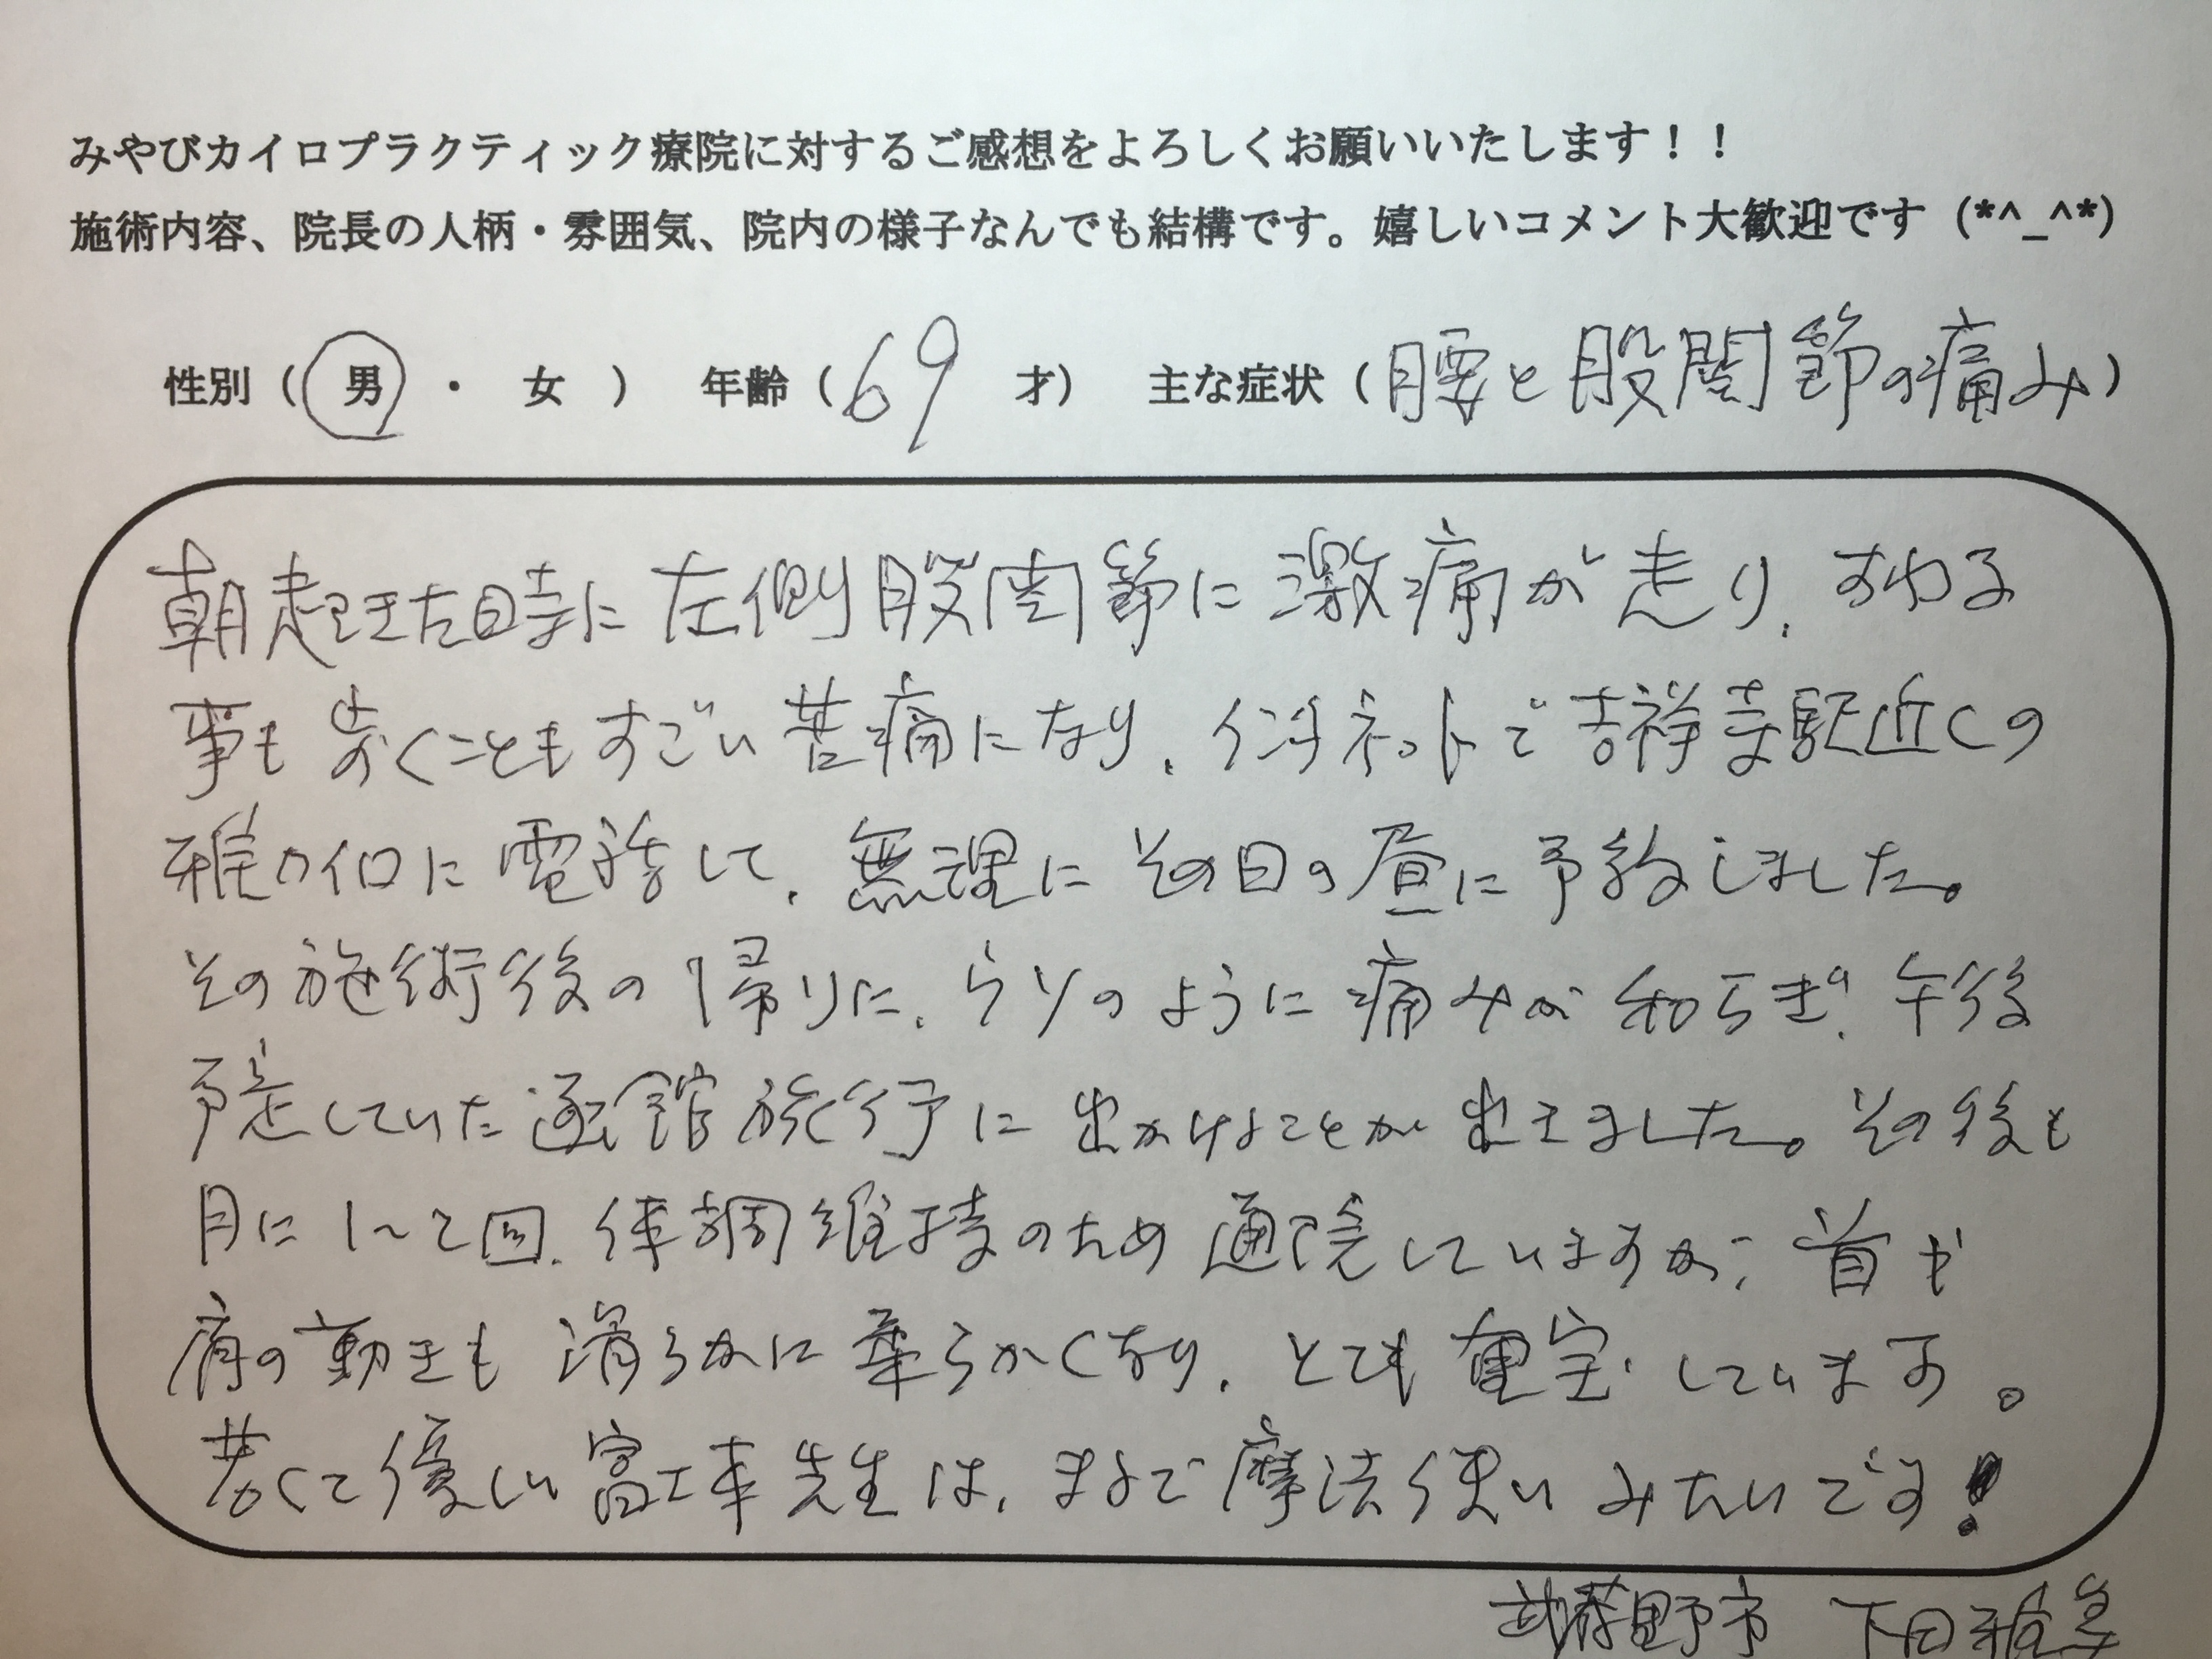 みやびカイロプラクティック療院に対するご感想をよろしくお願いいたします！！
施術内容、院長の人柄・雰囲気、院内の様子なんでも結構です。嬉しいコメント大歓迎です (*^_^*)
性別（ 男 ・ 女 ） 年齢（ 69 才） 主な症状（腰と股関節の痛み）
朝起きた時に左側股関節に激痛が走り、すわる
事も歩くこともすごい苦痛になり、インターネットで吉祥寺駅近くの
雅カイロに電話して、無理にその日の昼に予約しました。
その施術後の帰りに、ウソのように痛みが和らぎ、午後
予定していた函館旅行に出かけることが出来ました。その後も
月に1〜2回、体調維持のため通院していますが、首や
肩の動きも滑らかに柔らかくなり、とても重宝しています。
若くて優しい冨士本先生は、まるで摩法使いみたいです！
武蔵野市 下田雅